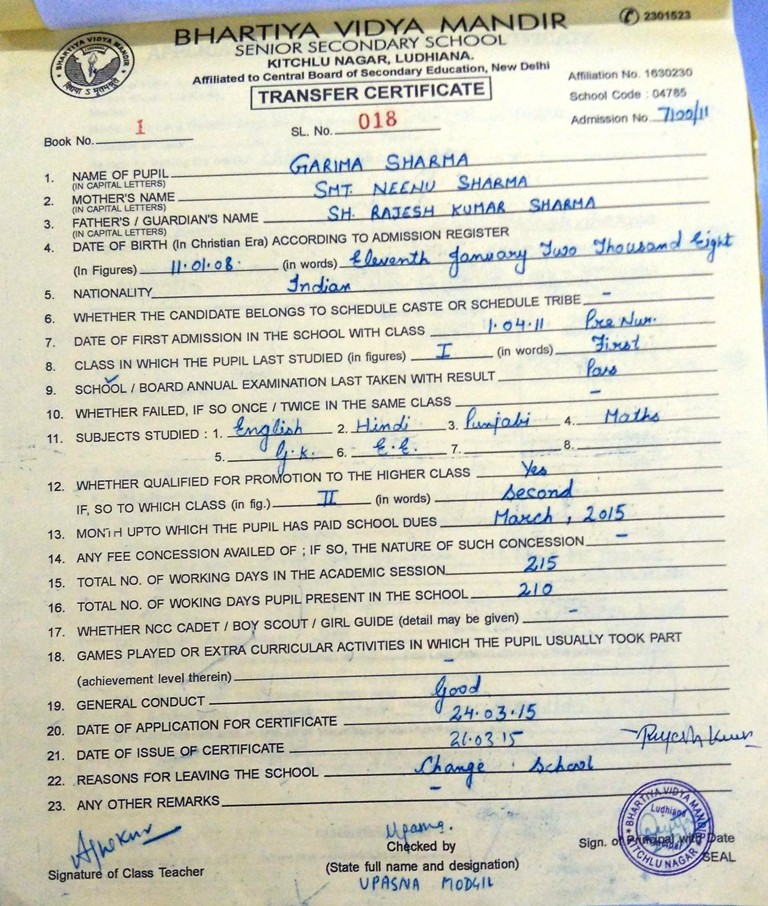 BHARTIYA VIDYA MANDIR
2301523
SENIOR SECONDARY SCHOOL
KITCHLU NAGAR, LUDHIANA.
Affiliated to Central Board of Secondary Education, New Delhi
TRANSFER CERTIFICATE
Affiliation No. 1630230
School Code : 04785
Admission No. 7100/11
Book No. 1 SL. No. 018
1. NAME OF PUPIL GARIMA SHARMA
(IN CAPITAL LETTERS)
2. MOTHER'S NAME SMT. NEENU SHARMA
(IN CAPITAL LETTERS)
3. FATHER'S / GUARDIAN'S NAME SH. RAJESH KUMAR SHARMA
(IN CAPITAL LETTERS)
4. DATE OF BIRTH (In Christian Era) ACCORDING TO ADMISSION REGISTER
(In Figures) 11.01.08. (in words) Eleventh January Two Thousand Eight
5. NATIONALITY Indian
6. WHETHER THE CANDIDATE BELONGS TO SCHEDULE CASTE OR SCHEDULE TRIBE -
7. DATE OF FIRST ADMISSION IN THE SCHOOL WITH CLASS 1.04.11 Pre Nur.
8. CLASS IN WHICH THE PUPIL LAST STUDIED (in figures) I (in words) First
9. SCHOOL / BOARD ANNUAL EXAMINATION LAST TAKEN WITH RESULT Pass
10. WHETHER FAILED, IF SO ONCE / TWICE IN THE SAME CLASS -
11. SUBJECTS STUDIED : 1. English 2. Hindi 3. Punjabi 4. Maths
5. G.K. 6. E.E. 7. 8.
12. WHETHER QUALIFIED FOR PROMOTION TO THE HIGHER CLASS Yes
IF, SO TO WHICH CLASS (in fig.) II (in words) Second
13. MONTH UPTO WHICH THE PUPIL HAS PAID SCHOOL DUES March, 2015
14. ANY FEE CONCESSION AVAILED OF ; IF SO, THE NATURE OF SUCH CONCESSION -
15. TOTAL NO. OF WORKING DAYS IN THE ACADEMIC SESSION 215
16. TOTAL NO. OF WOKING DAYS PUPIL PRESENT IN THE SCHOOL 210
17. WHETHER NCC CADET / BOY SCOUT / GIRL GUIDE (detail may be given) -
18. GAMES PLAYED OR EXTRA CURRICULAR ACTIVITIES IN WHICH THE PUPIL USUALLY TOOK PART
(achievement level therein) -
19. GENERAL CONDUCT Good
20. DATE OF APPLICATION FOR CERTIFICATE 24.03.15
21. DATE OF ISSUE OF CERTIFICATE 26.03.15
22. REASONS FOR LEAVING THE SCHOOL Change School
23. ANY OTHER REMARKS -
Signature of Class Teacher
Upasna.
Checked by
(State full name and designation)
UPASNA MODGIL
Sign. of Principal with Date
SEAL
BHARTIYA VIDYA MANDIR
Ludhiana
KITCHLU NAGAR